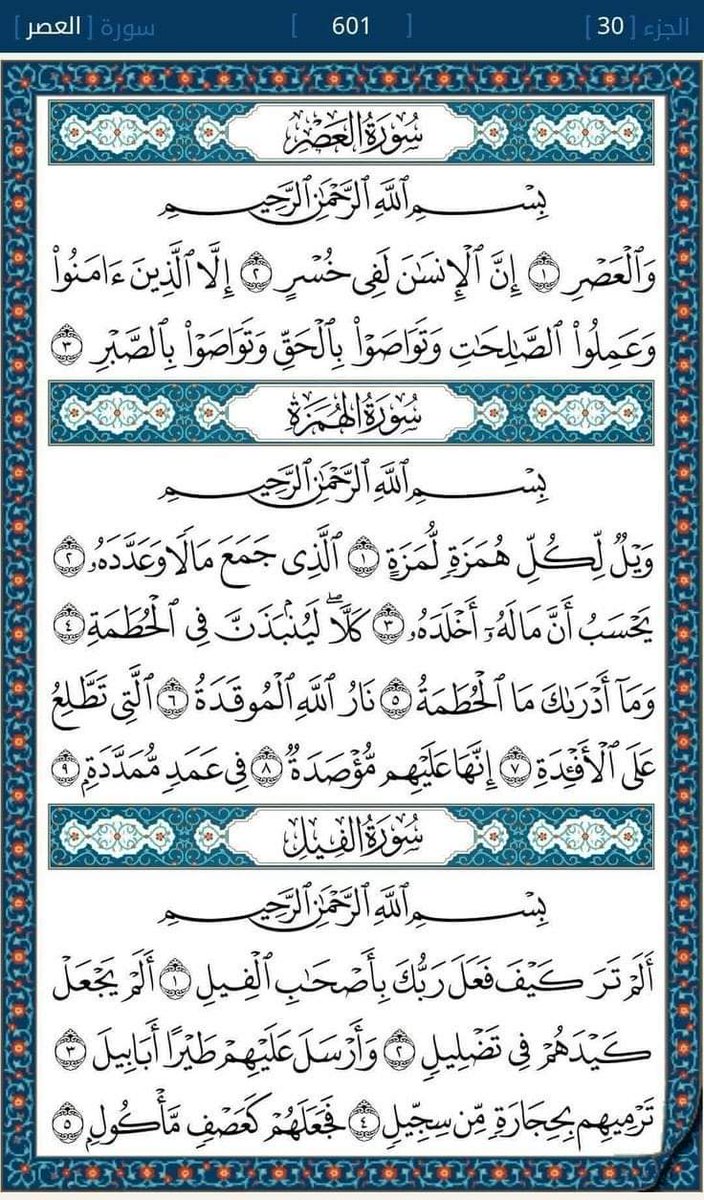 الجزء [ 30 ] [ 601 ] سورة [ العصر ]
سُورَةُ العَصْرِ
بِسْمِ ٱللَّهِ ٱلرَّحْمَٰنِ ٱلرَّحِيمِ
وَٱلْعَصْرِ ١ إِنَّ ٱلْإِنسَٰنَ لَفِى خُسْرٍ ٢ إِلَّا ٱلَّذِينَ ءَامَنُوا۟
وَعَمِلُوا۟ ٱلصَّٰلِحَٰتِ وَتَوَاصَوْا۟ بِٱلْحَقِّ وَتَوَاصَوْا۟ بِٱلصَّبْرِ ٣
سُورَةُ الهُمَزَةِ
بِسْمِ ٱللَّهِ ٱلرَّحْمَٰنِ ٱلرَّحِيمِ
وَيْلٌ لِّكُلِّ هُمَزَةٍ لُّمَزَةٍ ١ ٱلَّذِى جَمَعَ مَالًا وَعَدَّدَهُۥ ٢
يَحْسَبُ أَنَّ مَالَهُۥٓ أَخْلَدَهُۥ ٣ كَلَّا ۖ لَيُنۢبَذَنَّ فِى ٱلْحُطَمَةِ ٤
وَمَآ أَدْرَىٰكَ مَا ٱلْحُطَمَةُ ٥ نَارُ ٱللَّهِ ٱلْمُوقَدَةُ ٦ ٱلَّتِى تَطَّلِعُ
عَلَى ٱلْأَفْـِٔدَةِ ٧ إِنَّهَا عَلَيْهِم مُّؤْصَدَةٌ ٨ فِى عَمَدٍ مُّمَدَّدَةٍۭ ٩
سُورَةُ الفِيلِ
بِسْمِ ٱللَّهِ ٱلرَّحْمَٰنِ ٱلرَّحِيمِ
أَلَمْ تَرَ كَيْفَ فَعَلَ رَبُّكَ بِأَصْحَٰبِ ٱلْفِيلِ ١ أَلَمْ يَجْعَلْ
كَيْدَهُمْ فِى تَضْلِيلٍ ٢ وَأَرْسَلَ عَلَيْهِمْ طَيْرًا أَبَابِيلَ ٣
تَرْمِيهِم بِحِجَارَةٍ مِّن سِجِّيلٍ ٤ فَجَعَلَهُمْ كَعَصْفٍ مَّأْكُولٍۭ ٥